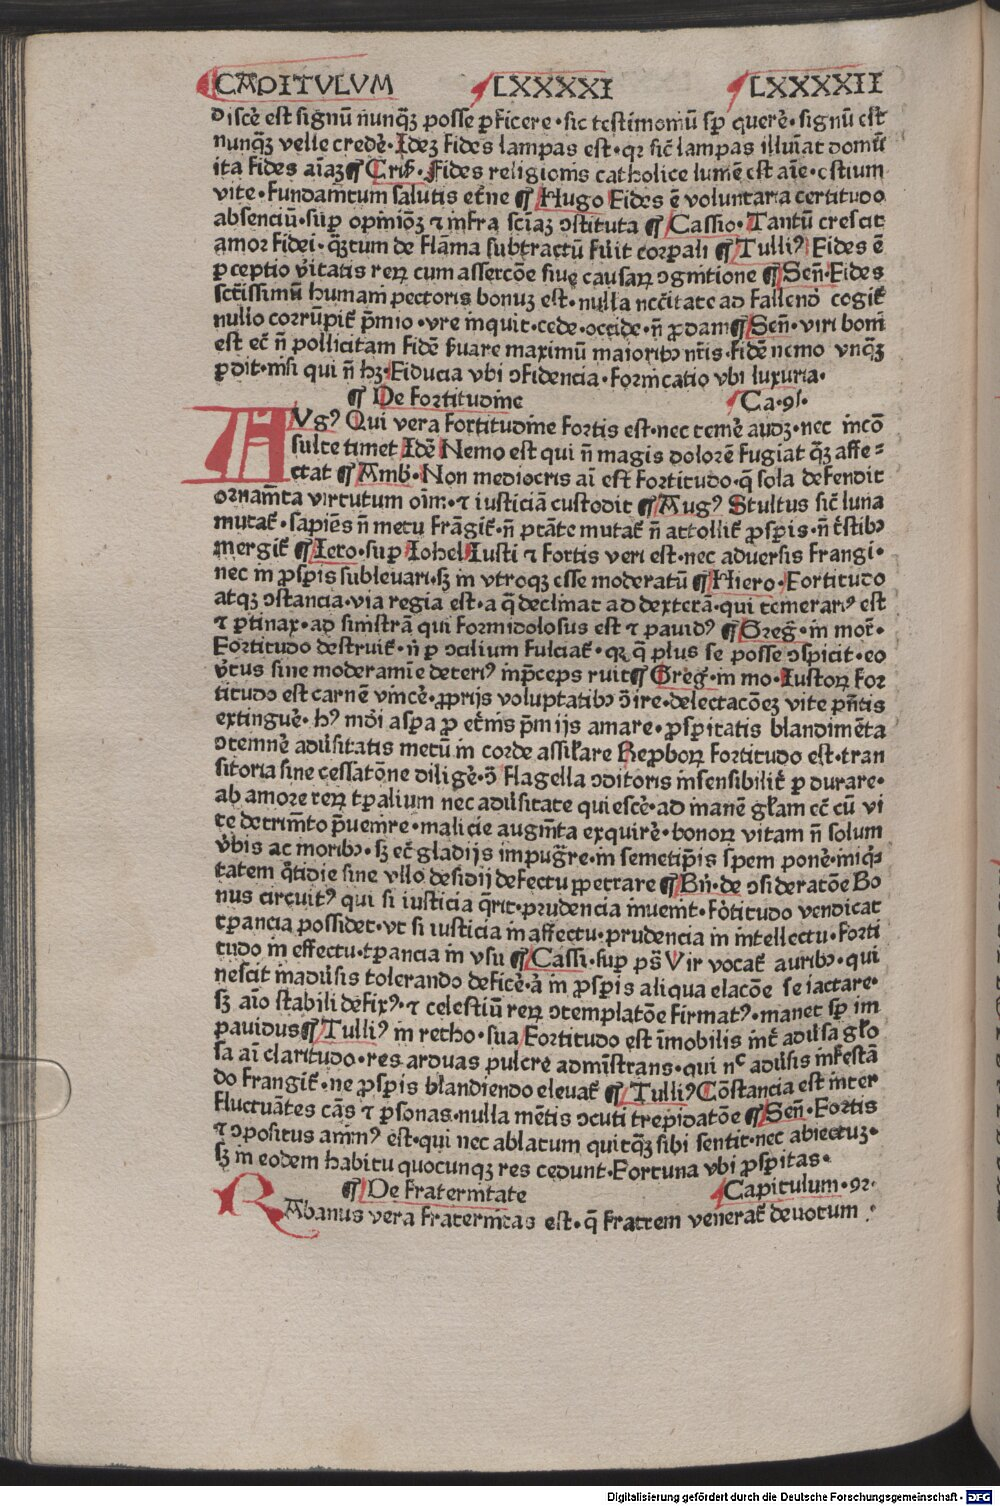 CAPITULUM LXXXXI LXXXXII
discẽ est signũ nunqꝫ posse ꝓficere · sic testimoniũ sꝑ querẽ · signũ est
nunqꝫ velle credẽ · Ideꝫ Fides lampas est · qꝛ sic̃ lampas illuĩat domũ
ita fides aĩaꝫ ¶ Criſ̃ · Fides religionis catholice lumẽ est aĩe · ostium
vite · fundam̃tum salutis et̃ne ¶ Hugo Fides ẽ voluntaria certitudo
absenciũ · suꝑ opiniõꝫ ⁊ infra sciãꝫ ↄstituta ¶ Cassio · Tantũ crescit
amor fidei · qꝫtum de flãma subtractũ fũit corꝑali ¶ Tulliꝰ Fides ẽ
ꝑceptio ṽitatis reꝝ cum assercõe siue causaꝝ ↄgnitione ¶ Señ · Fides
sc̃tissimũ humani pectoris bonuꝫ est · nulla nc̃citate ad fallendũ cogit̃
nullo corrũpit̃ p̃mio · vre inquit · cede · occide · ñ ꝓdam ¶ Señ · viri boni
est ec̃ ñ pollicitam fidẽ ẜuare maximũ maioribꝫ nr̃is · fidẽ nemo vnqꝫ
ꝑdit · nisi qui ñ hꝫ · Fiducia vbi ↄfidencia · Fornicatio vbi luxuria ·
¶ De fortitudine Ca · 91 ·
AVgꝰ Qui vera fortitudine fortis est · nec temẽ audꝫ · nec incõ
sulte timet Idẽ Nemo est qui ñ magis dolorẽ fugiat qꝫ affe=
ctat ¶ Amb̃ · Non mediocris aĩ est fortitudo · q̃ sola defendit
ornam̃ta virtutum oĩm · ⁊ iusticiã custodit ¶ Augꝰ Stultus sic̃ luna
mutat̃ · sapiẽs ñ metu frãgit̃ · ñ ptãte mutat̃ ñ attollit̃ ꝓsꝑis · ñ t̃stibꝫ
mergit̃ ¶ Iero · suꝑ Iohel Iusti ⁊ fortis veri est · nec aduersis frangi ·
nec in ꝓsꝑis subleuari · sꝫ in vtroqꝫ esse moderatũ ¶ Hiero · Fortitudo
atqꝫ ↄstancia · via regia est · a q̃ declinat ad dexterã · qui temerariꝰ est
⁊ ꝑtinax · ad sinistrã qui formidolosus est ⁊ pauidꝰ ¶ Greg̃ · in mor̃ ·
Fortitudo destruit̃ · ñ ꝑ ↄcilium fulciat̃ · qꝛ q̃ plus se posse ↄspicit · eo
ṽtus sine moderamĩe deteriꝰ inp̃ceps ruit ¶ Greg̃ · in mo · Iustoꝝ for
titudo est carnẽ vincẽ · ꝓprijs voluptatibꝫ ↄ̃ire · delectacõeꝫ vite pñtis
extinguẽ · hꝰ mũdi asꝑa ꝓ et̃nis p̃mijs amare · ꝓsꝑitatis blandimẽta
ↄtemnẽ adũsitatis metũ in corde assilare Reꝓboꝝ fortitudo est · tran
sitoria sine cessatõne diligẽ · ↄ̃ flagella ↄditoris insensibilit̃ ꝑ durare ·
ab amore reꝝ tꝑalium nec adũsitate quiescẽ · ad inanẽ gl̃am ec̃ cũ vi
te detrim̃to p̃uenire · malicie augm̃ta exquirẽ · bonoꝝ vitam ñ solum
ṽbis ac moribꝫ · sꝫ ec̃ gladijs impug̃re · in semetip̃is spem ponẽ · iniq̃
tatem q̃tidie sine vllo desidij defectu ꝑpetrare ¶ Bñ · de ↄsideratõe Bo
nus circuitꝰ qui si iusticia q̃rit · prudencia inuenit · Fõtitudo vendicat
tꝑancia possidet · vt si iusticia in affectu · prudencia in intellectu · Forti
tudo in effectu · tꝑancia in vsu ¶ Cassi · suꝑ ps̃ Vir vocat̃ auribꝫ · qui
nescit in adũsis tolerando deficẽ · a in ꝓsꝑis aliqua elacõe se iactare ·
sꝫ aĩo stabili defixꝰ · ⁊ celestiũ reꝝ ↄtemplatõe firmatꝰ · manet sꝑ im
pauidus ¶ Tulliꝰ in retho · sua Fortitudo est ĩmobilis int̃ adũsa glo
sa aĩ claritudo · res arduas pulcre administrans · qui nᶜ adũsis infestã
do frangit̃ · ne ꝓsꝑis blandiendo eleuat̃ ¶ Tulliꝰ Cõstancia est inter
fluctuãtes cãs ⁊ ꝑsonas · nulla mẽtis ↄcuti trepidatõe ¶ Señ · Fortis
⁊ ↄpositus animꝰ est · qui nec ablatum quitqꝫ sibi sentit · nec abiectuꝫ ·
sꝫ in eodem habitu quocunqꝫ res cedunt · Fortuna vbi ꝓsꝑitas ·
¶ De fraternitate Capitulum · 92 ·
RAbanus vera fraternitas est · q̃ fratrem venerat̃ deuotum ·
Digitalisierung gefördert durch die Deutsche Forschungsgemeinschaft - DFG